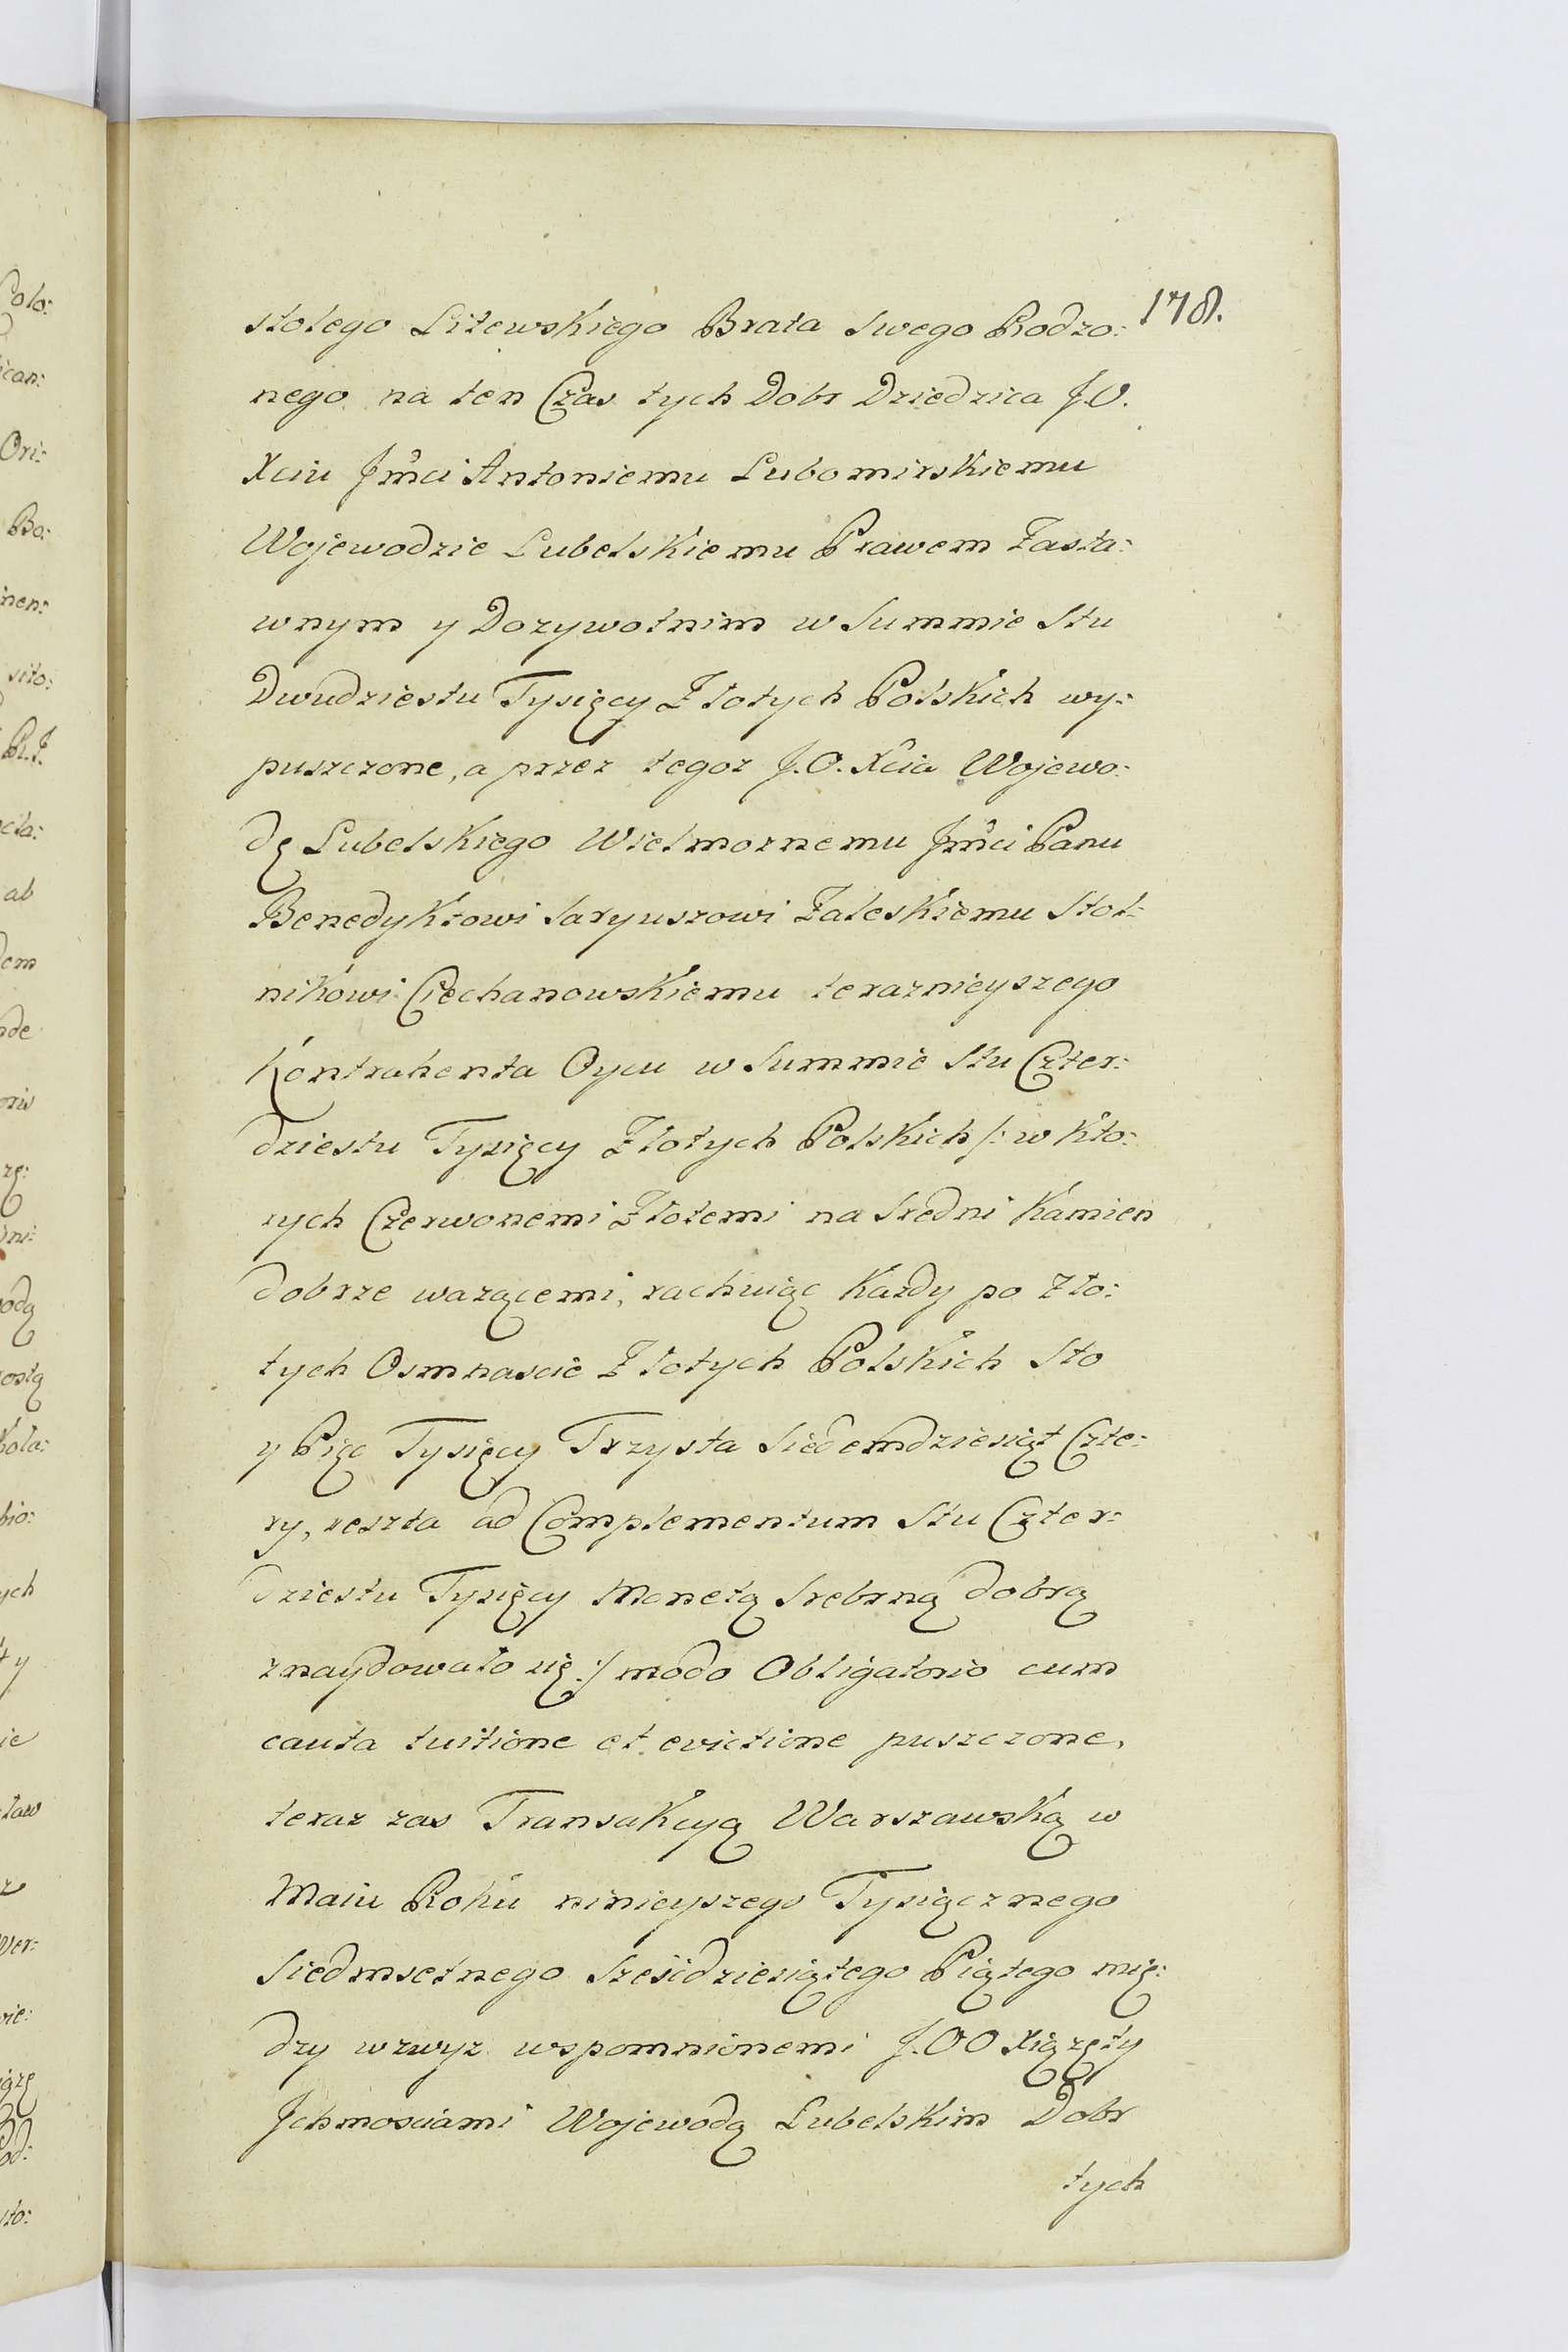 178.
stolego Litewskiego Brata swego Rodzo:
nego na ten Czas tych Dobr Dziedzica J.O.
Xciu Jmci Antoniemu Lubomirskiemu
Wojewodzie Lubelskiemu Prawem Zasta:
wnym y Dozywotnim w Summie Stu
Dwudziestu Tysięcy Złotych Polskich wy:
puszczone, a przez tegoz J.O. Xcia Wojewo:
dę Lubelskiego Wielmoznemu Jmci Panu
Benedyktowi Saryuszowi Zaleskiemu Stol:
nikowi Ciechanowskiemu teraznieyszego
Kontrahenta Oycu w Summie Stu Czter:
dziestu Tysięcy Złotych Polskich /: w kto:
rych Czerwonemi Złotemi na Sredni Kamien
dobrze wazącemi, rachuiąc Kazdy po Zło:
tych Osmnascie Złotych Polskich Sto
y Pięc Tysięcy Trzysta Siedemdziesiąt Czte:
ry, reszta ad Complementum Stu Czter:
dziestu Tysięcy Monetą Srebrną dobrą
znaydowało się :/ modo Obligatorio cum
cauta tuitione et evictione puszczone,
teraz zas Transakcyą Warszawską w
Maiu Roku ninieyszego Tysiącznego
Siedmsetnego Sześćdziesiątego Piątego mię:
dzy wzwyz wspomnionemi J.OO Xiązęty
Jchmosciami Wojewodą Lubelskim Dobr
tych
Polo:
ican:
Ori:
Bo:
inen:
sito:
ab
dem
nde
rzę:
ni:
bio:
ych
ław
wer:
wie: